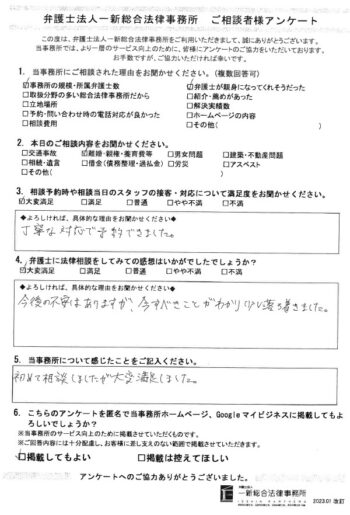 弁護士法人一新総合法律事務所 ご相談者様アンケート
この度は、弁護士法人一新総合法律事務所をご利用いただきまして、誠にありがとうございます。
当事務所では、より一層のサービス向上のために、皆様にアンケートのご協力をいただいております。
お手数ですが、ご協力いただければ幸いです。
1. 当事務所にご相談された理由をお聞かせください。（複数回答可）
☑事務所の規模・所属弁護士数 ☑弁護士が親身になってくれそうだった
□取扱分野の多い総合法律事務所だから □紹介・薦めがあった
□立地場所 □解決実績数
□予約・問い合わせ時の電話対応が良かった □ホームページの内容
□相談費用 □その他( )
2. 本日のご相談内容をお聞かせください。
□交通事故 ☑離婚・親権・養育費等 □男女問題 □建築・不動産問題
□相続・遺言 □借金(債務整理・過払金) □労災 □アスベスト
□その他( )
3. 相談予約時や相談当日のスタッフの接客・対応について満足度をお聞かせください。
☑大変満足 □満足 □普通 □やや不満 □不満
◆よろしければ、具体的な理由をお聞かせください◆
丁寧な対応で予約できました。
4. 弁護士に法律相談をしてみての感想はいかがでしたでしょうか？
☑大変満足 □満足 □普通 □やや不満 □不満
◆よろしければ、具体的な理由をお聞かせください◆
今後の不安はありますが、今すべきことがわかり少し落ち着きました。
5. 当事務所について感じたことをご記入ください。
初めて相談しましたが大変満足しました。
6. こちらのアンケートを匿名で当事務所ホームページ、Googleマイビジネスに掲載してもよ
ろしいでしょうか？
※当事務所のサービス向上のために掲載させていただくものです。
※ご回答内容には十分配慮し、お客様に差し支えのない範囲で掲載させていただきます。
□掲載してもよい □掲載は控えてほしい
アンケートへのご協力ありがとうございました。
弁護士法人
一新総合法律事務所
2023.01 改訂